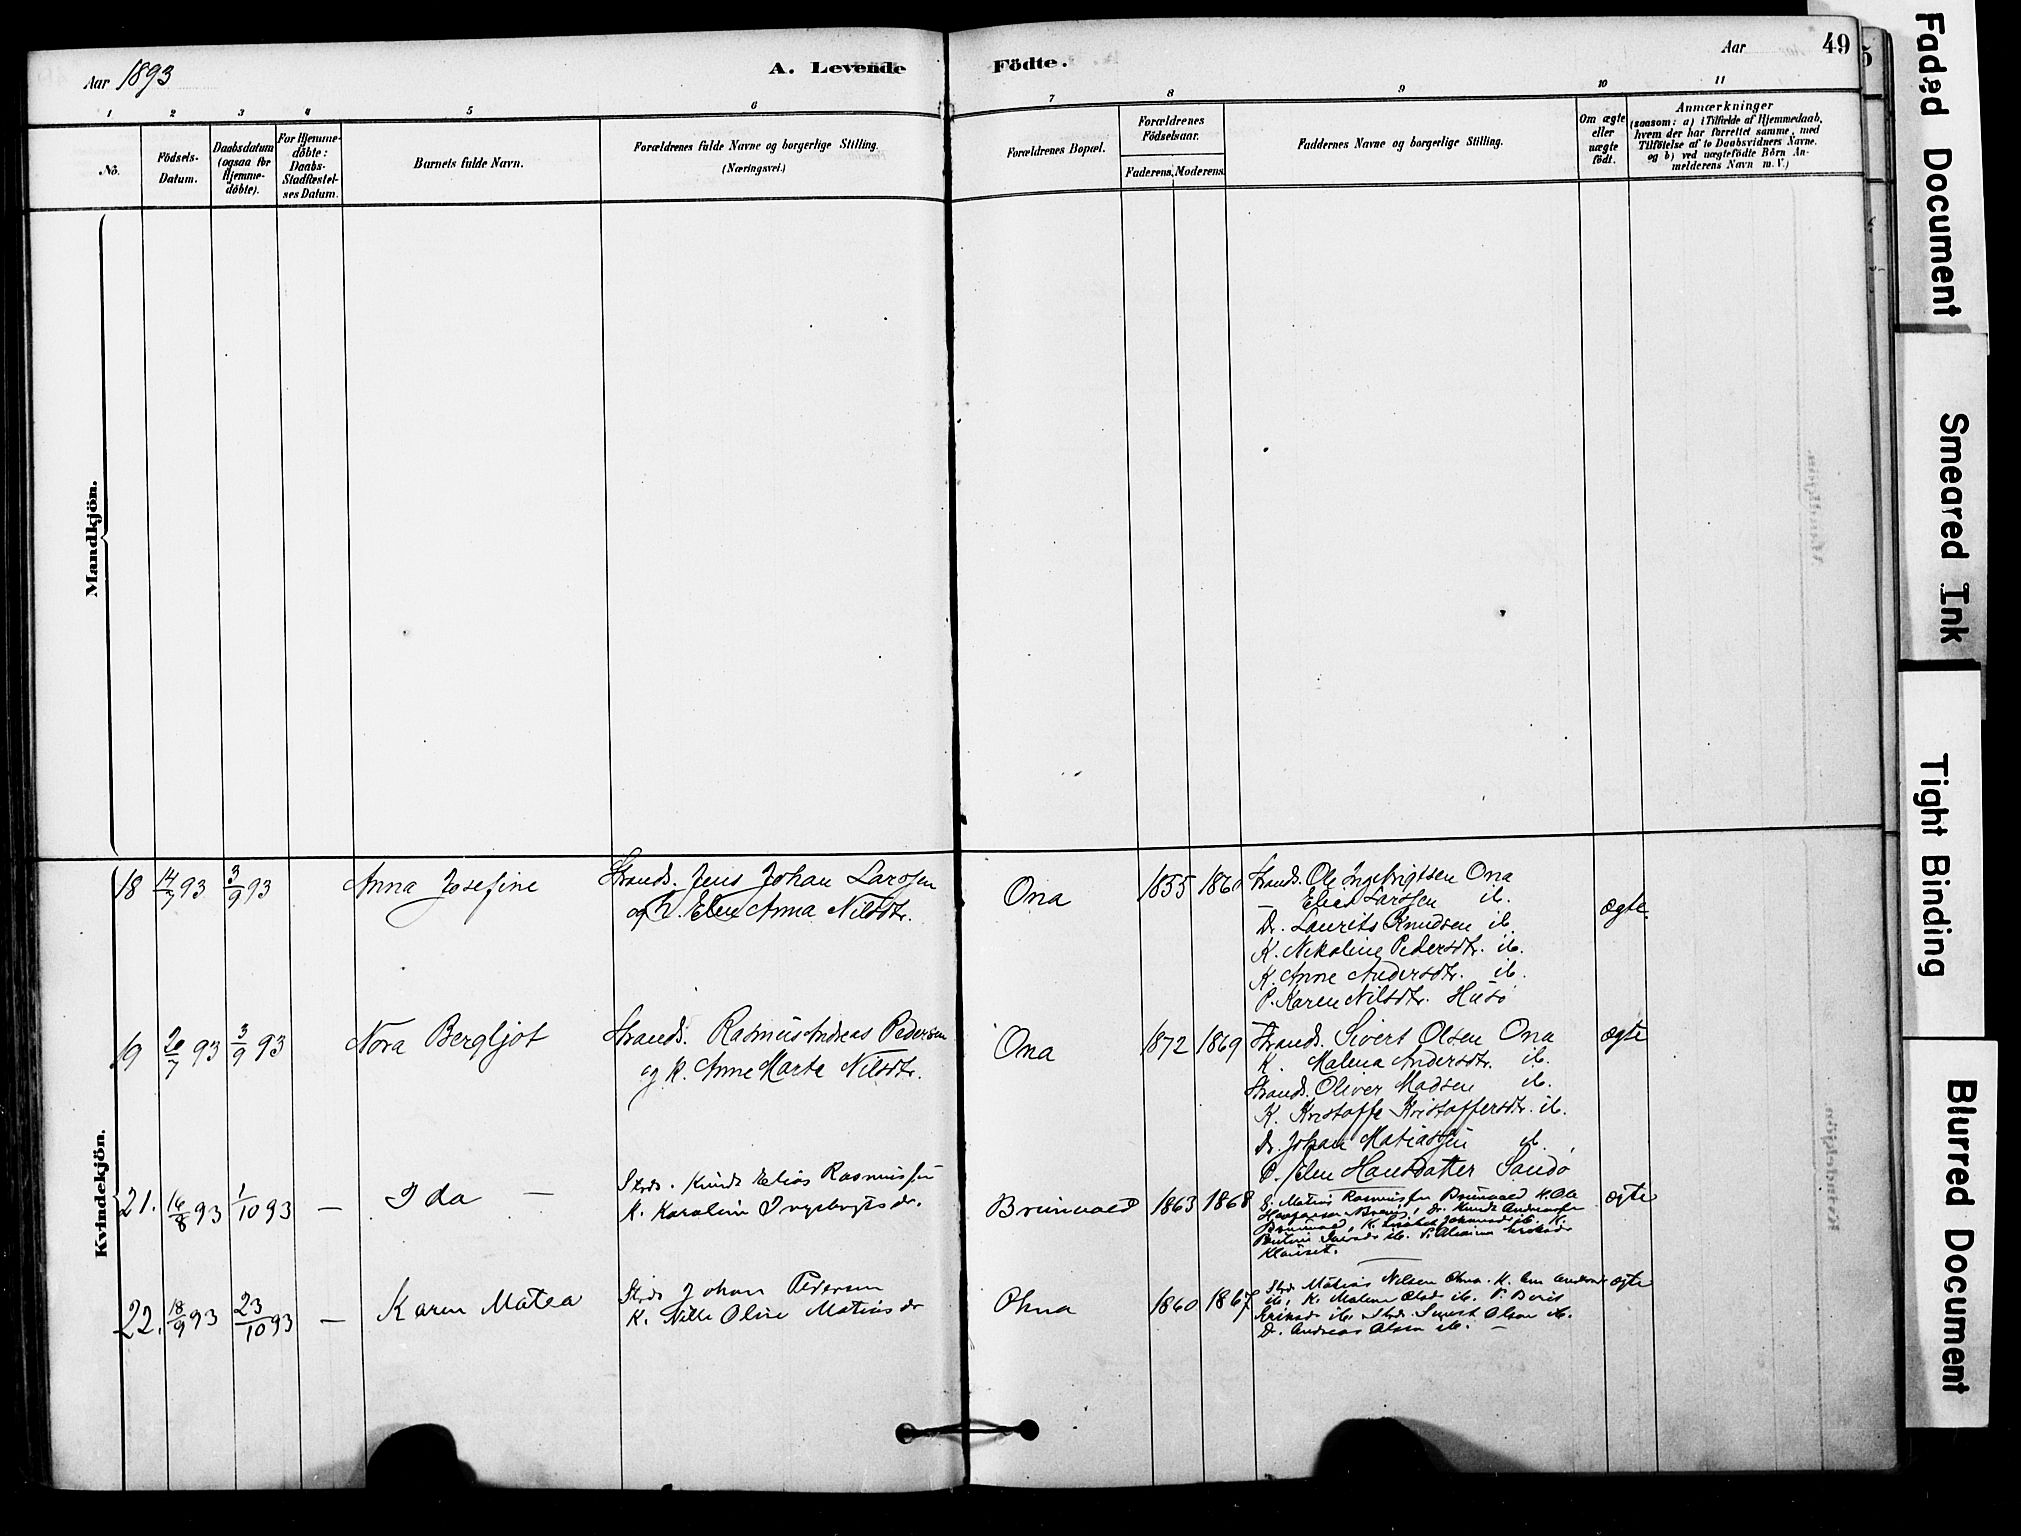 Aar 1893
A. Levende
Födte.
Aar
49
5
1 2 3 4 5 6 7 8 9 10 11
No.
Födsels-
Datum.
Daabsdatum
(ogsaa for
Hjemme-
döbte).
For Hjemme-
döbte:
Daabs-
Stadfæstel-
ses Datum.
Barnets fulde Navn.
Forældrenes fulde Navne og borgerlige Stilling.
(Næringsvei.)
Forældrenes Bopæl.
Forældrenes
Födselsaar.
Faderens. Moderens.
Faddernes Navne og borgerlige Stilling.
Om ægte
eller
uægte
födt.
Anmærkninger
(saasom: a) i Tilfælde af Hjemmedaab,
hvem der har forrettet samme, med
Tilföielse af to Daabsvidners Navne.
og b) ved uægtefödte Börn An-
melderens Navn m. V.)
Mandkjön.
Kvindekjön.
18 14/7 93 3/9 93 Anna Josefine
Strands. Jens Johan Larssen
og K. Elen Anna Nilsdtr.
Ona 1855 1860
Strands. Ole Ingebrigtsen Ona
Elias Larssen ib.
D. Laurits Knudsen ib.
K. Nikoline Pedersdtr. ib.
K. Anne Andersdtr. ib.
P. Karen Nilsdtr. Husö
ægte
19 20/7 93 3/9 93 Nora Bergljot
Strands. Rasmus Andreas Pedersen
og K. Anne Marta Nilsdtr.
Ona 1872 1869
Strands. Sivert Olsen Ona
K. Malena Andersdtr. ib.
Strands. Oliver Madsen ib.
K. Kristoffe Kristoffersdtr. ib.
D. Johan Matiassen ib.
P. Elen Hansdatter Sandö
ægte
21. 16/8 93 1/10 93 — Ida —
Strds. Knud Elias Rasmussen
K. Karoline Ingebrigtsdr.
Brimvold 1863 1868
G. Matias Rasmussen
ægte
22. 18/9 93 23/10 93 — Karen Matea
Strds Johan Pedersen
K. Nille Oline Matiasdr
Ohna 1860 1867
Strds. Matias Nilsen Ohna. K.
ib. K. Malene Olsdr ib. P. Berit
ib. Strds. Sivert Olsen ib.
D. Andreas Olsen ib. —
ægte
Faded Document
Smeared Ink
Tight Binding
Blurred Document